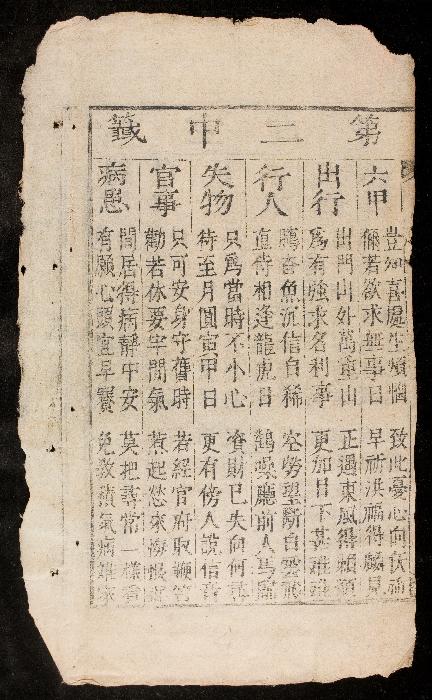 第二中籤
六甲
豈知喜處生煩惱 致此憂心向伏神
儞若欲求無事日 早祈洪福得麟兒
出行
出門山外萬重山 正遇東風得
為有強求名利事 更加日下甚難
行人
鴈杳魚沉信自稀 空勞望斷白雲飛
直待相逢龍虎日 鵲噪廳前人馬歸
失物
只為當時不小心 資財已失向何尋
待至月圓寅甲日 更有傍人說信音
官事
只可安身守舊時 若經官府取鞭笞
勸若休要牢閒氣 惹起愁來悔
病患
閒居得病靜中安 莫把尋常一樣看
有願心頭宜早賽 免教積氣病難